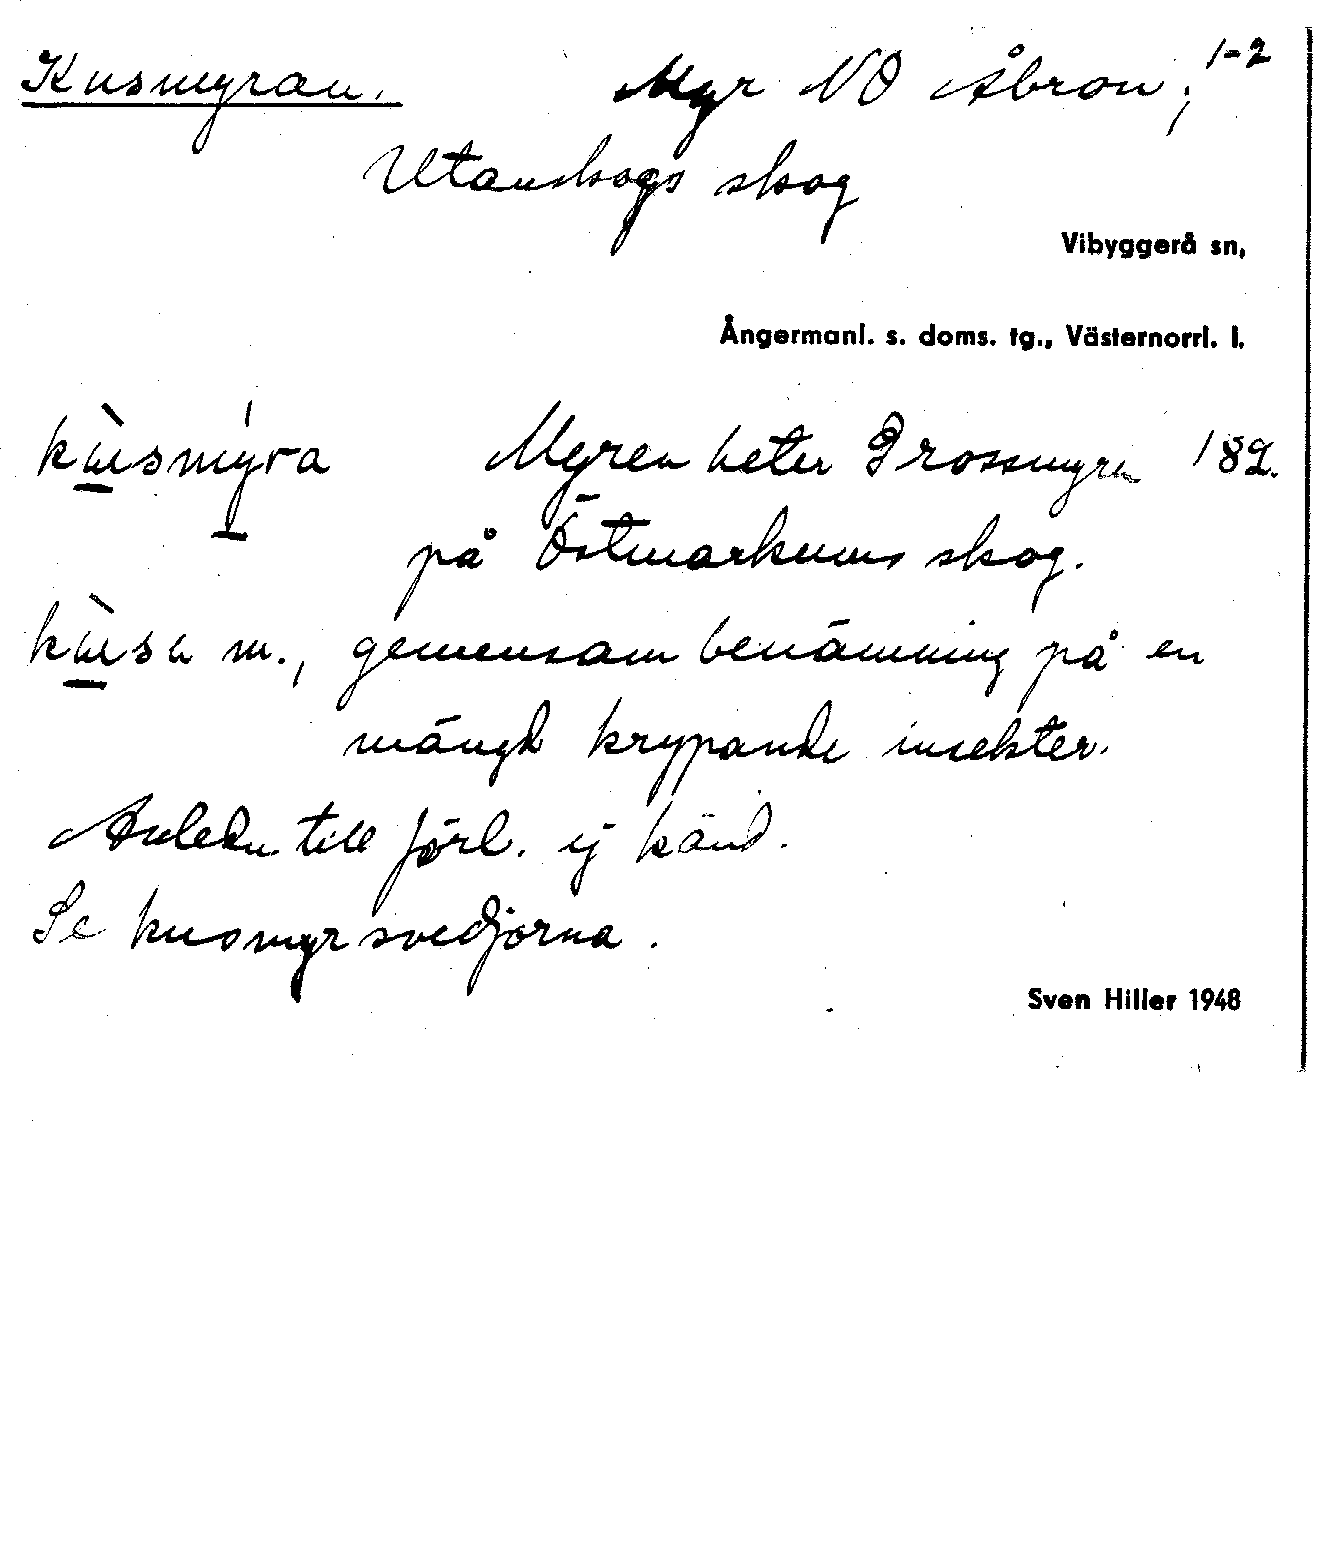 Kusmyran. Myr NO Åbron; 1-2
Utanskogs skog
Vibyggerå sn,
Ångermanl. s. doms. tg., Västernorrl. l.
kùsmýra Myren heter Grossmyren 182.
på Östmarkums skog.
kùsa m., gemensam benämning på en
mängd krypande insekter.
Anledn till förl. ej känd.
Se kusmyrsvedjorna.
Sven Hiller 1948